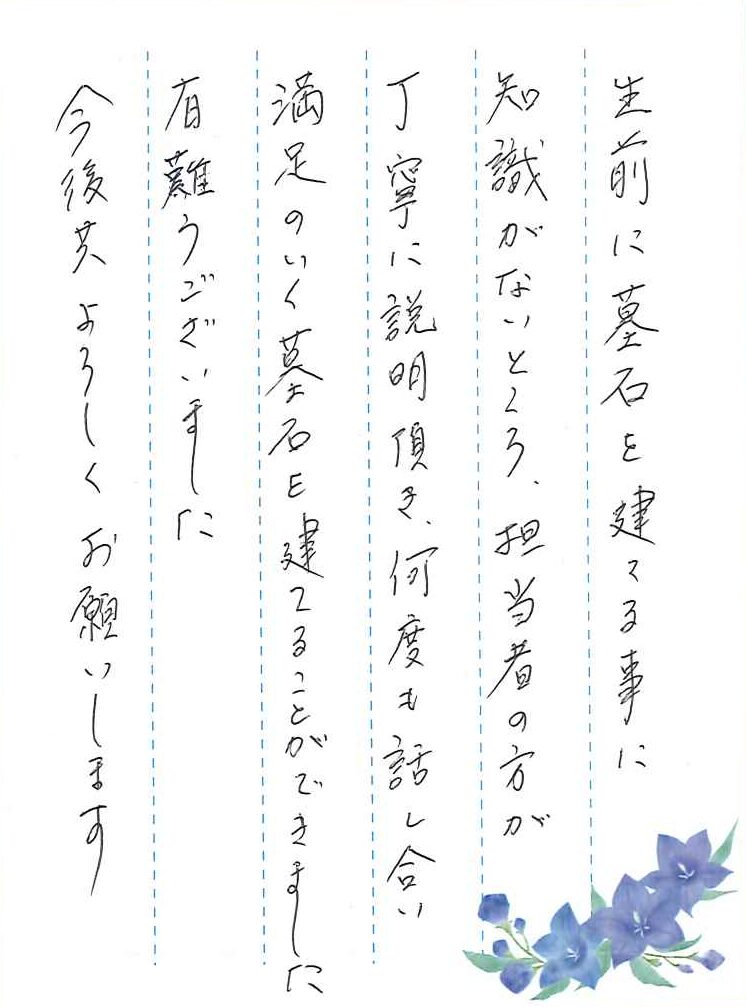 生前に墓石を建てる事に
知識がないところ、担当者の方が
丁寧に説明頂き、何度も話し合い
満足のいく墓石を建てることができました
有難うございました
今後共よろしくお願いします